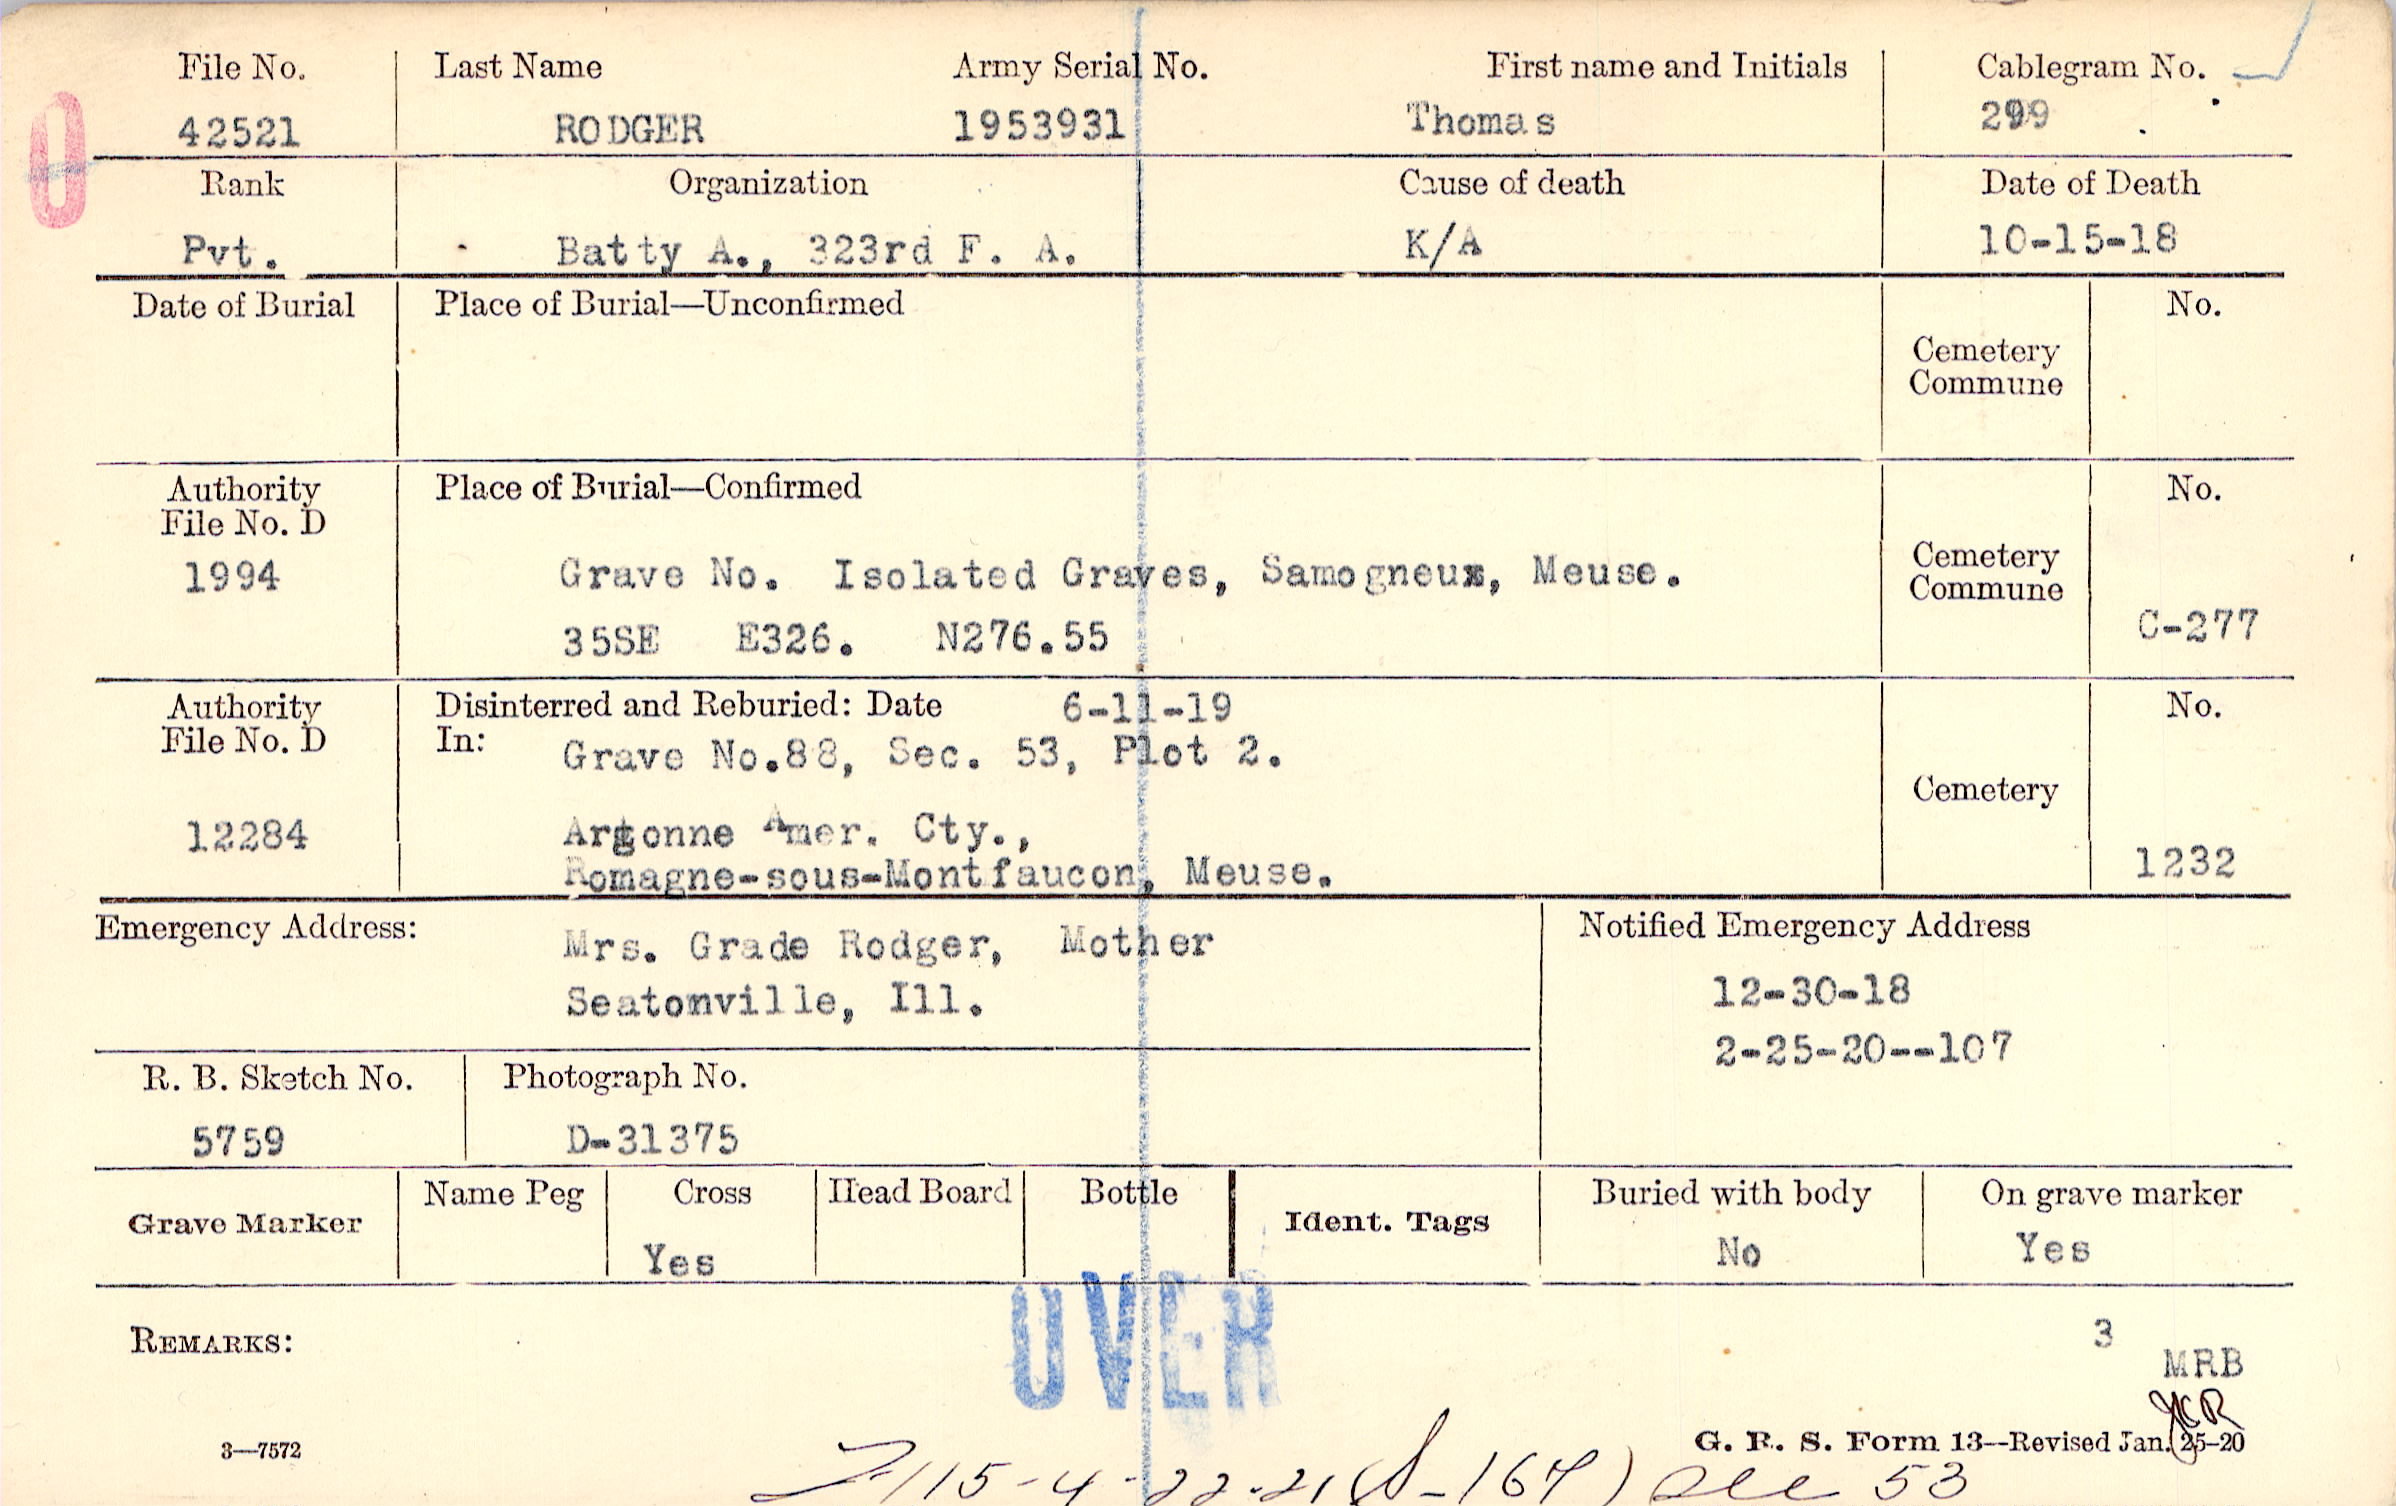 File No. Last Name Army Serial No. First name and Initials Cablegram No.
42521 RODGER 1953931 Thomas 299
Rank Organization Cause of death Date of Death
Pvt. Batty A., 323rd F. A. K/A 10-15-18
Date of Burial Place of Burial—Unconfirmed No.
Cemetery
Commune
Authority Place of Burial—Confirmed No.
File No. D
1994 Grave No. Isolated Graves, Samogneux, Meuse. Cemetery
Commune
35SE E326. N276.55 C-277
Authority Disinterred and Reburied: Date 6-11-19 No.
File No. D In: Grave No.88, Sec. 53, Plot 2.
Cemetery
12284 Argonne Amer. Cty.,
Romagne-sous-Montfaucon, Meuse. 1232
Emergency Address: Mrs. Grade Rodger, Mother Notified Emergency Address
Seatonville, Ill. 12-30-18
2-25-20--107
R. B. Sketch No. Photograph No.
5759 D-31375
Grave Marker Name Peg Cross Head Board Bottle Ident. Tags Buried with body On grave marker
Yes No Yes
OVER
REMARKS: 3
MRB
3—7572 G. R. S. Form 13—Revised Jan. 25-20
115-4-22-21 53